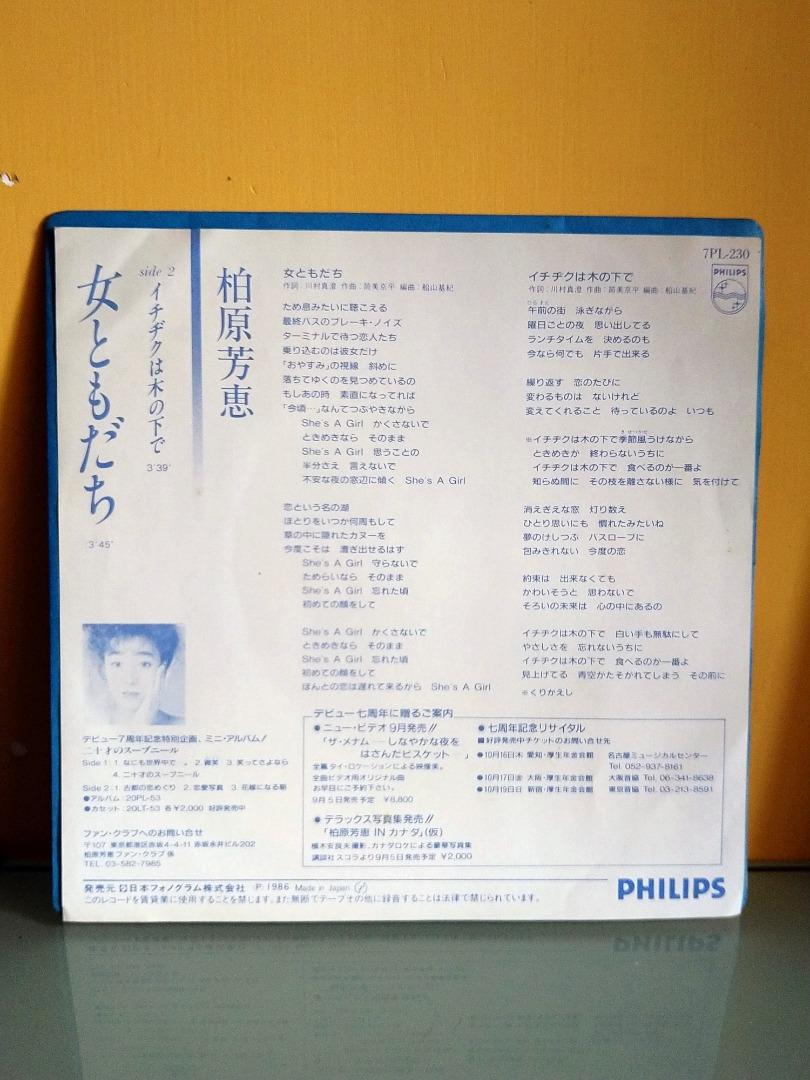 7PL-230
PHILIPS
女ともだち
3'45"
side 2
イチヂクは木の下で
3'39"
柏原芳恵
女ともだち
作詞:川村真澄 作曲:筒美京平 編曲:船山基紀
ため息みたいに聴こえる
最終バスのブレーキ・ノイズ
ターミナルで待つ恋人たち
乗り込むのは彼女だけ
「おやすみ」の視線 斜めに
落ちてゆくのを見つめているの
もしあの時 素直になってれば
「今頃…」なんてつぶやきながら
She's A Girl かくさないで
ときめきなら そのまま
She's A Girl 思うことの
半分さえ 言えないで
不安な夜の窓辺に傾く She's A Girl
恋という名の湖
ほとりをいつか何周もして
草の中に隠れたカヌーを
今度こそは 漕ぎ出せるはず
She's A Girl 守らないで
ためらいなら そのまま
She's A Girl 忘れた頃
初めての顔をして
She's A Girl かくさないで
ときめきなら そのまま
She's A Girl 忘れた頃
初めての顔をして
ほんとの恋は遅れて来るから She's A Girl
イチヂクは木の下で
作詞:川村真澄 作曲:筒美京平 編曲:船山基紀
午前の街 泳ぎながら
曜日ごとの夜 思い出してる
ランチタイムを 決めるのも
今なら何でも 片手で出来る
繰り返す 恋のたびに
変わるものは ないけれど
変えてくれること 待っているのよ いつも
※イチヂクは木の下で季節風うけながら
ときめきが 終わらないうちに
イチヂクは木の下で 食べるのが一番よ
知らぬ間に その枝を離さない様に 気を付けて
消えぎえな窓 灯り数え
ひとり思いにも 慣れたみたいね
夢のけしつぶ バスローブに
包みきれない 今度の恋
約束は 出来なくても
かわいそうと 思わないで
そろいの未来は 心の中にあるの
イチヂクは木の下で 白い手も無駄にして
やさしさを 忘れないうちに
イチヂクは木の下で 食べるのが一番よ
見上げてる 青空がたそがれてしまう その前に
※くりかえし
デビュー7周年記念特別企画、ミニ・アルバム!
二十才のスーブニール
Side 1:1. なにも世界中で 。 2. 微笑 3. 笑ってさよなら
4. 二十才のスーブニール
Side 2:1. 古都の恋めぐり 2. 恋愛写真 3. 花嫁になる朝
●アルバム:20PL-53
●カセット:20LT-53 各¥2,000 好評発売中
ファン・クラブへのお問い合せ
〒107 東京都港区赤坂4-4-11 赤坂永井ビル202
柏原芳恵ファン・クラブ 係
TEL. 03-582-7985
デビュー七周年に贈るご案内
●ニュー・ビデオ9月発売!!
「ザ・メナム — しなやかな夜を
はさんだビスケット — 」
全篇タイ・ロケーションによる映像美。
全曲ビデオ用オリジナル曲
お早目にご予約下さい。
9月5日発売予定 ¥6,800
●デラックス写真集発売!!
「柏原芳恵 IN カナダ」(仮)
橋本安良夫撮影、カナダロケによる豪華写真集
講談社スコラより9月5日発売予定 ¥2,000
●七周年記念リサイタル
■好評発売中チケットのお問い合せ先
●10月16日木 愛知・厚生年金会館 名古屋ミュージカルセンター
Tel. 052-937-8161
●10月17日金 大阪・厚生年金会館 大阪音協 Tel. 06-341-8638
●10月19日日 新宿・厚生年金会館 東京音協 Tel. 03-213-8591
発売元 日本フォノグラム株式会社 Ⓟ 1986 Made in Japan
このレコードを賃貸業に使用することを禁じます。また無断でテープその他に録音することは法律で禁じられています。
PHILIPS